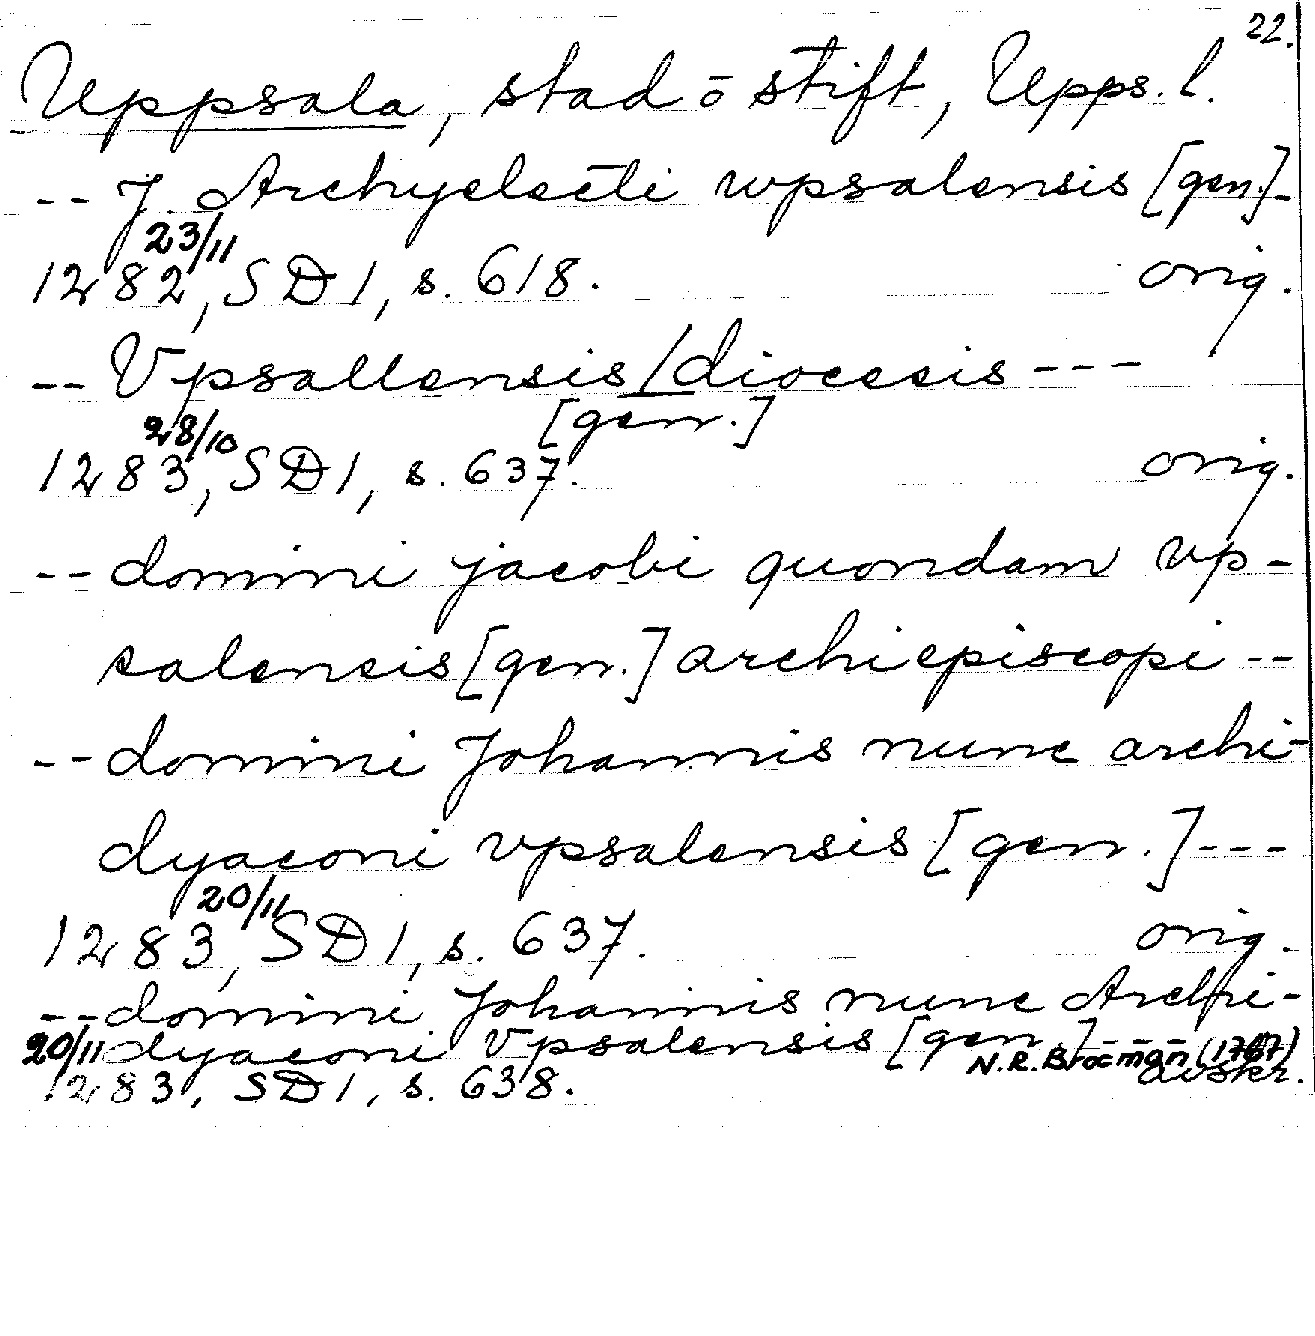 22.
Uppsala, stad o stift, Upps. l.
-- J. Archyelecti wpsalensis [gen.]-
23/11
1282, SD 1, s. 618. orig.
-- Vpsallensis/diocesis ---
[gen.]
28/10
1283, SD 1, s. 637. orig.
-- domini jacobi quondam vp-
salensis [gen.] archiepiscopi --
-- domini Johannis nunc archi-
dyaconi vpsalensis [gen.] ---
20/11
1283, SD 1, s. 637. orig.
-- domini Johannis nunc Archi-
dyaconi Vpsalensis [gen.] ---
20/11 N.R. Brocman (1767)
1283, SD 1, s. 638. avskr.